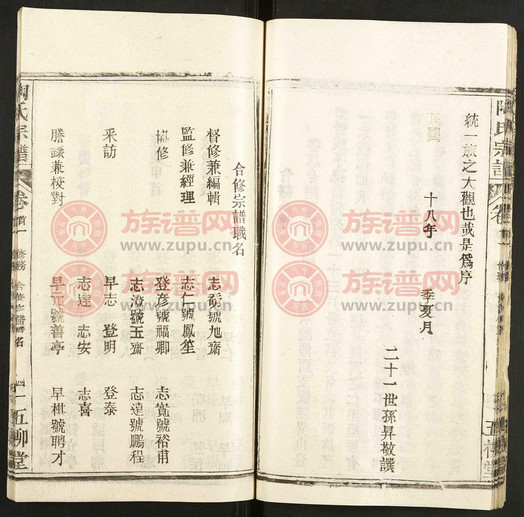 統一族之大觀也哉是爲序
民國
十八年 季夏月
二十一世孫昇敬譔
合修宗譜職名
督修兼編輯 志 號旭齋
監修兼經理 志仁號鳳笙
協修 登彥號 卿 志寬號裕甫
志 號玉齋 志達號鵬程
采訪 早志 登明 登泰
志達 志安 志喜
謄錄兼校對 早元號善亭 早楙號聘才
陶氏宗譜 卷首一 修務 合修宗譜職名 四十一 五柳堂
族谱网
www.zupu.cn
族谱网
www.zupu.cn
族谱网
www.zupu.cn
族谱网
www.zupu.cn